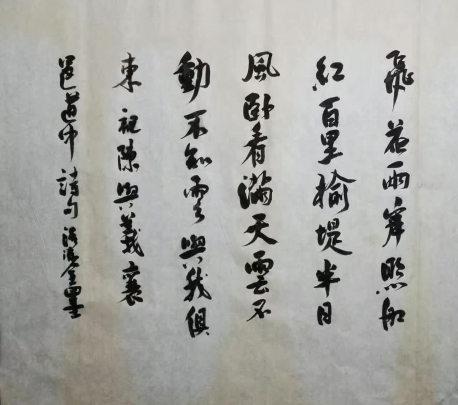 飛花兩岸照船
紅百里榆堤半日
風卧看滿天雲不
動不知雲與我俱
東 陳與義襄
邑道中詩句